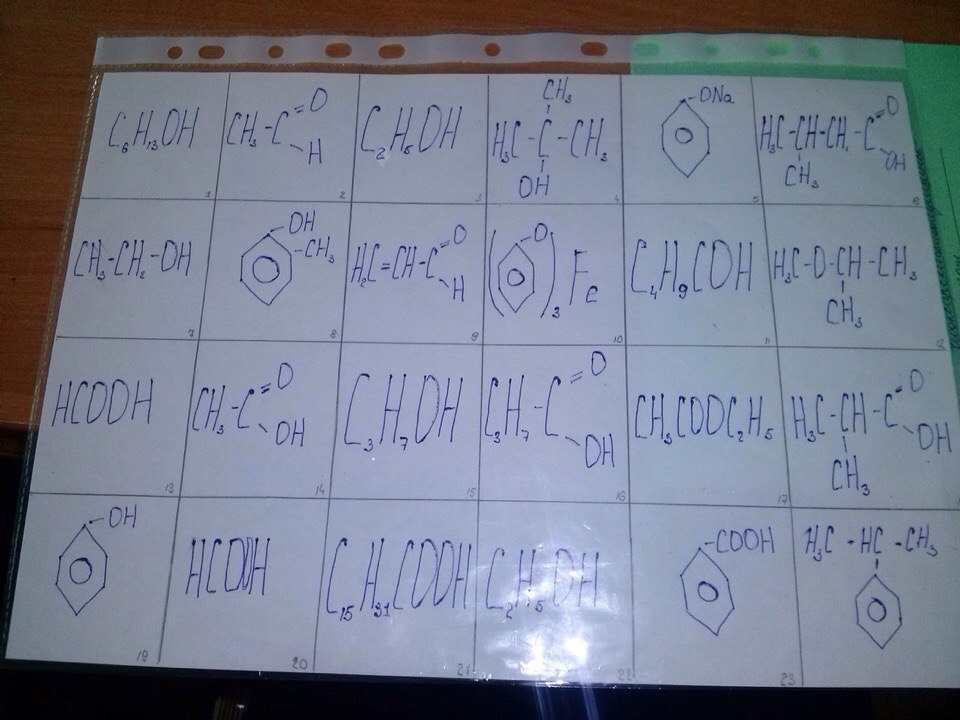 C₆H₁₃OH
1
CH₃-C=O
-H
2
C₂H₅OH
3
CH₃
H₃C-C-CH₃
OH
4
-ONa
5
H₃C-CH-CH₂-C=O
OH
CH₃
6
CH₃-CH₂-OH
7
OH
-CH₃
8
H₂C=CH-C=O
H
9
(-O)₃Fe
10
C₄H₉COH
11
H₃C-O-CH-CH₃
CH₃
12
HCOOH
13
CH₃-C=O
OH
14
C₃H₇OH
15
C₃H₇-C=O
OH
16
CH₃COOC₂H₅
17
H₃C-CH-C=O
OH
CH₃
-OH
19
HCOOH
20
C₁₅H₃₁COOH
21
C₂H₅OH
22
-COOH
23
H₃C-HC-CH₃